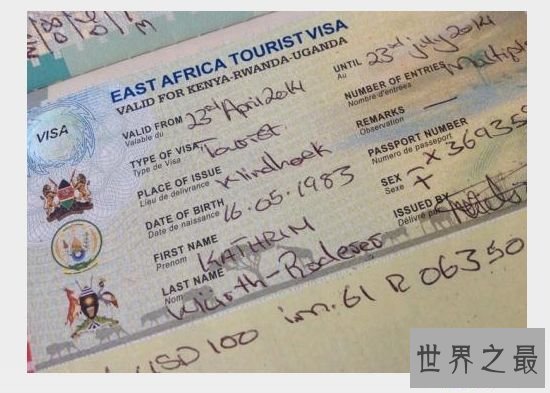 EAST AFRICA TOURIST VISA
VALID FOR KENYA-RWANDA-UGANDA
VISA
VALID FROM 23rd April 2014
Valable du
UNTIL 23rd July 2014
Au
TYPE OF VISA Tourist
Type de Visa
NUMBER OF ENTRIES Multiple
Nombre d'entrées
PLACE OF ISSUE Windhoek
Lieu de délivrance
REMARKS
Observation
DATE OF BIRTH 16.05.1983
Date de naissance
PASSPORT NUMBER
Numero de passeport
FIRST NAME KATHRIN
Prenom
SEX F
Sexe
LAST NAME
Nom
ISSUED BY
Délivré par
USD 100 im. 61 R 06350
世界之最